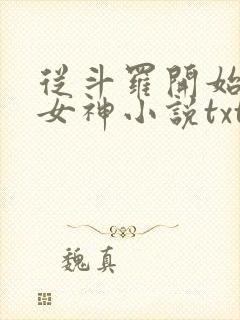 從斗羅開始
女神小說txt
魏真